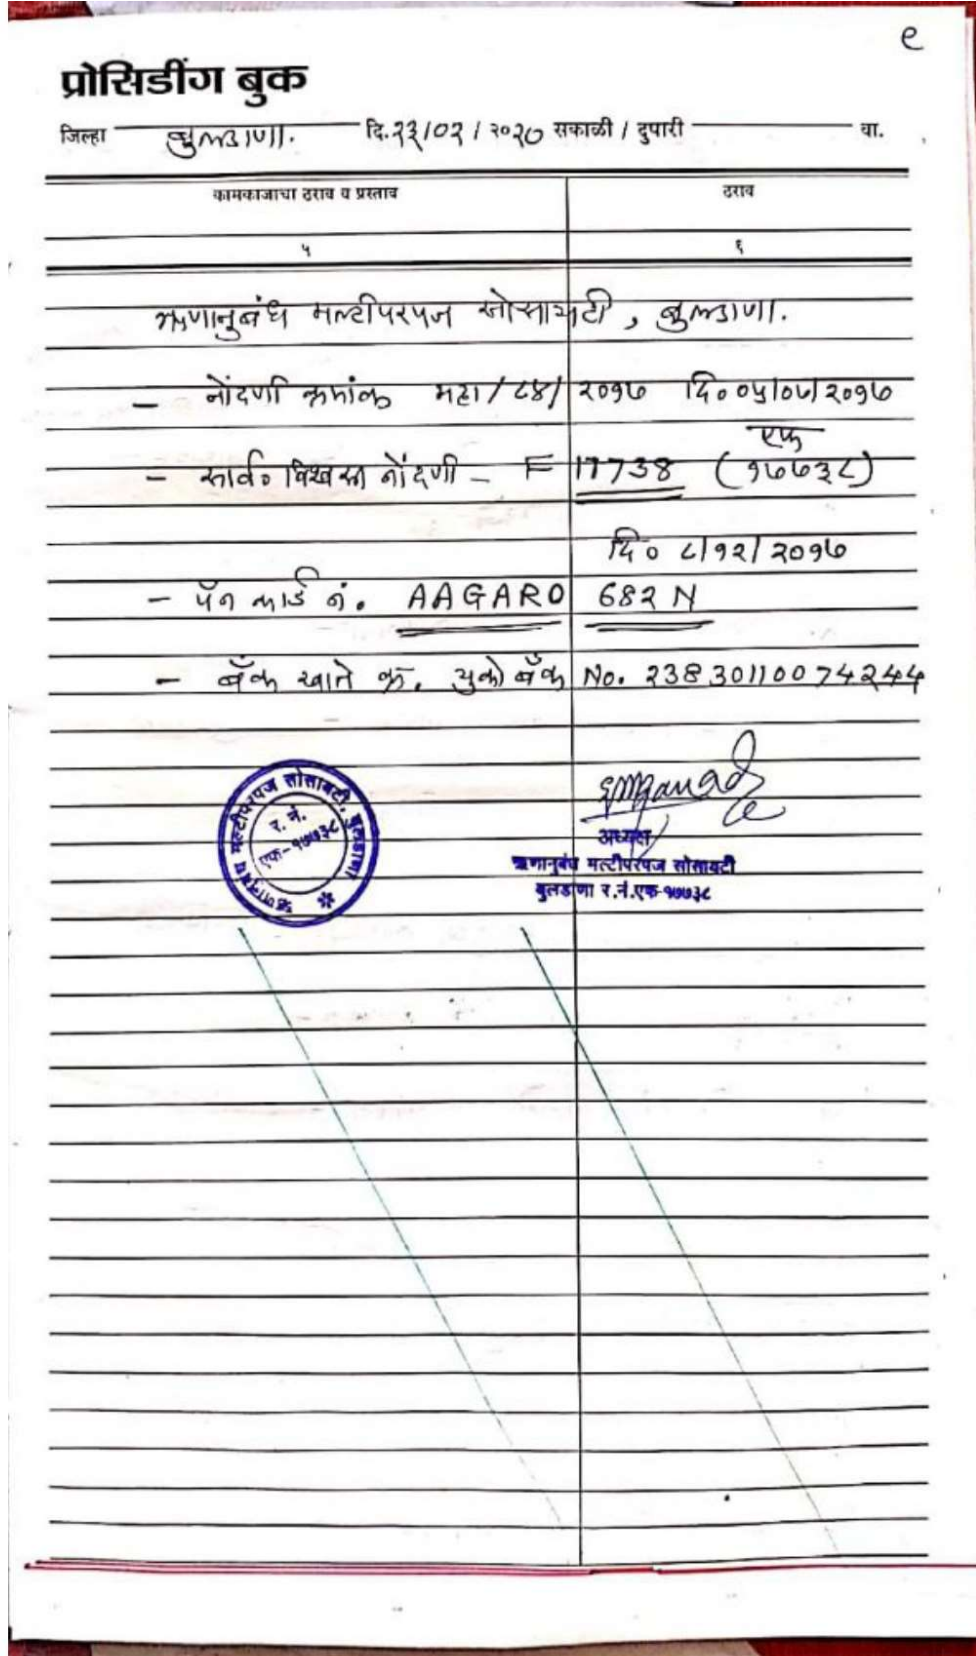 ९
प्रोसिडींग बुक
जिल्हा बुलडाणा. दि.२३/०२/२०२० सकाळी / दुपारी वा.
कामकाजाचा ठराव व प्रस्ताव ठराव
५ ६
ऋणानुबंध मल्टीपरपज सोसायटी, बुलडाणा.
- नोंदणी क्रमांक महा/८४/२०१७ दि००५/०७/२०१७
एफ
- सार्व० विश्वस्त नोंदणी - F 17738 (१७७३८)
दि० ८/१२/२०१७
- पॅन कार्ड नं. AAGARO 682 N
- बँक खाते क्र. युको बँक No. 23830110074244
ऋणानुबंध मल्टीपरपज सोसायटी, बुलडाणा
र. नं.
एफ-१७७३८
अध्यक्ष
ऋणानुबंध मल्टीपरपज सोसायटी
बुलडाणा र.नं.एफ-१७७३८